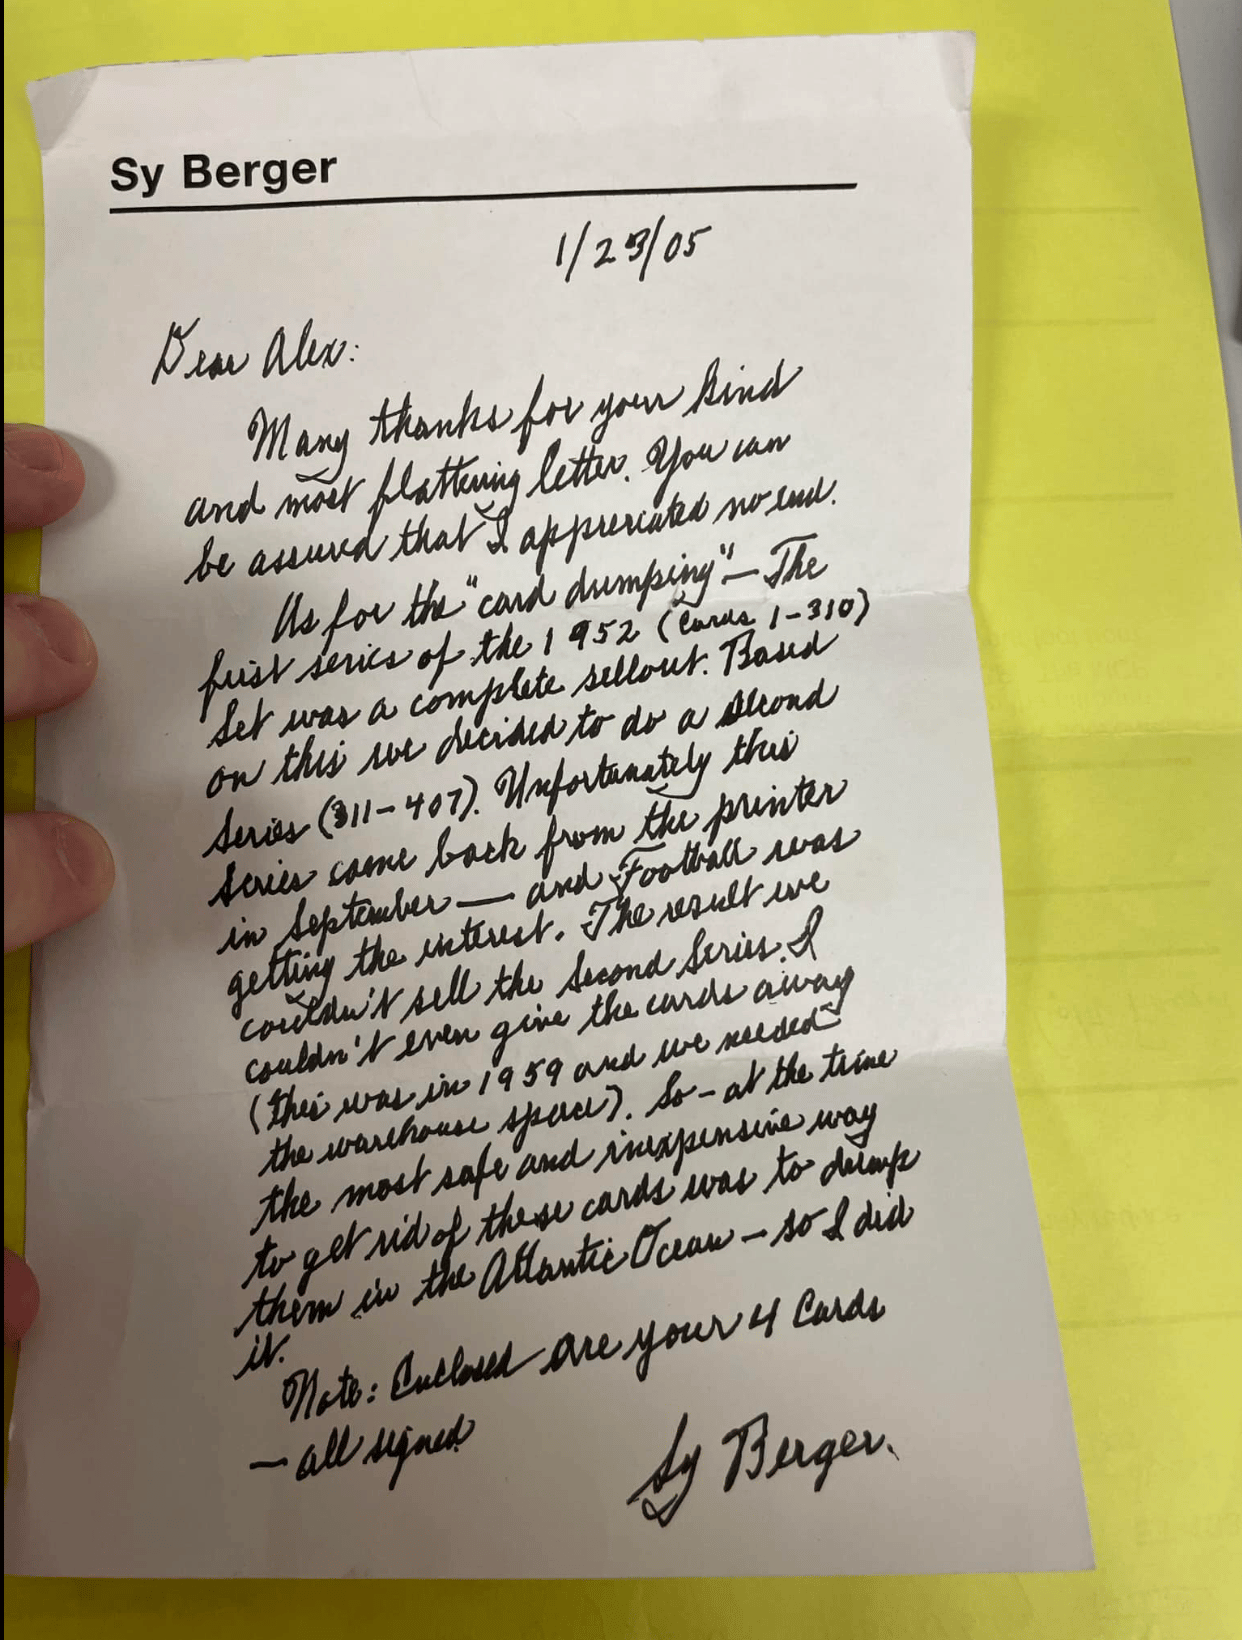 Sy Berger
1/23/05
Dear Alex:
Many thanks for your kind
and most flattering letter. You can
be assured that I appreciated no end.
As for the "card dumping" — The
first series of the 1952 (Cards 1-310)
Set was a complete sellout. Based
on this we decided to do a second
Series (311-407). Unfortunately this
Series came back from the printer
in September — and Football was
getting the interest. The result we
couldn't sell the Second Series. I
couldn't even give the cards away
(this was in 1959 and we needed
the warehouse space). So - at the time
the most safe and inexpensive way
to get rid of these cards was to dump
them in the Atlantic Ocean - so I did
it.
Note: Enclosed are your 4 Cards
— all signed
Sy Berger.